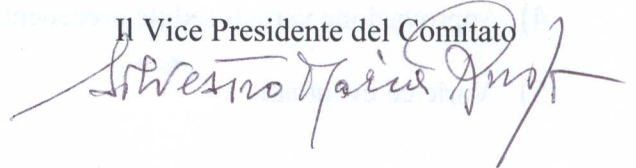 Il Vice Presidente del Comitato
Silvestro Maria